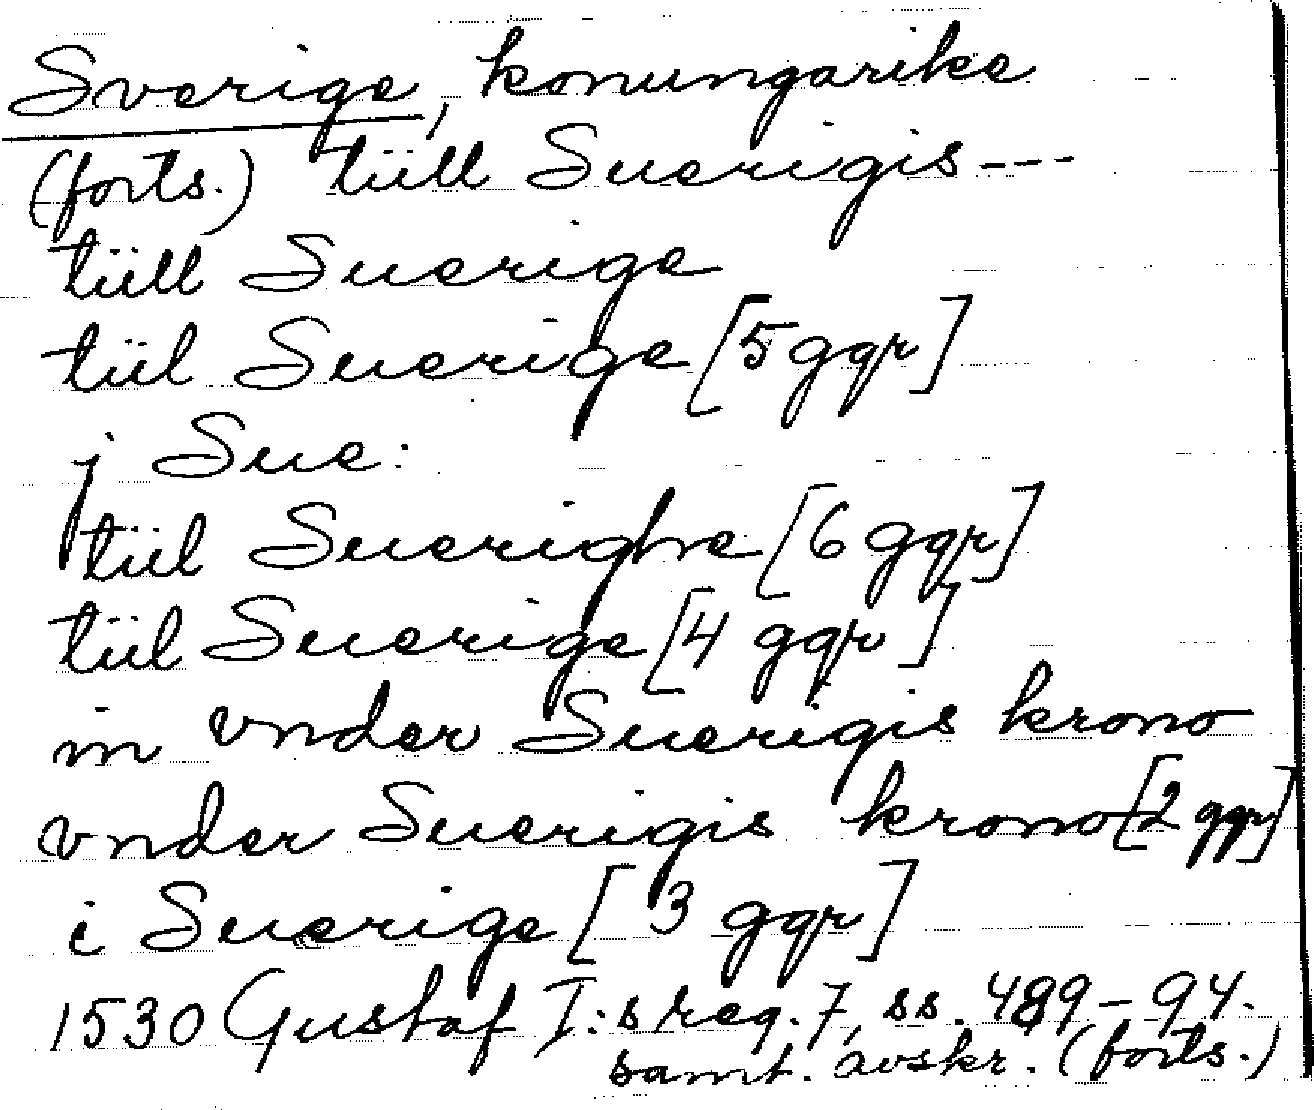 Sverige, konungarike
(forts.) tiill Suerigis---
tiill Suerige
tiil Suerige [5 ggr]
j Sue:
tiil Suerighe [6 ggr]
tiil Suerige [4 ggr]
in vnder Suerigis krono
vnder Suerigis krono [2 ggr]
i Suerige [3 ggr]
1530 Gustaf I:s reg. 7, ss. 489-94.
samt. avskr. (forts.)